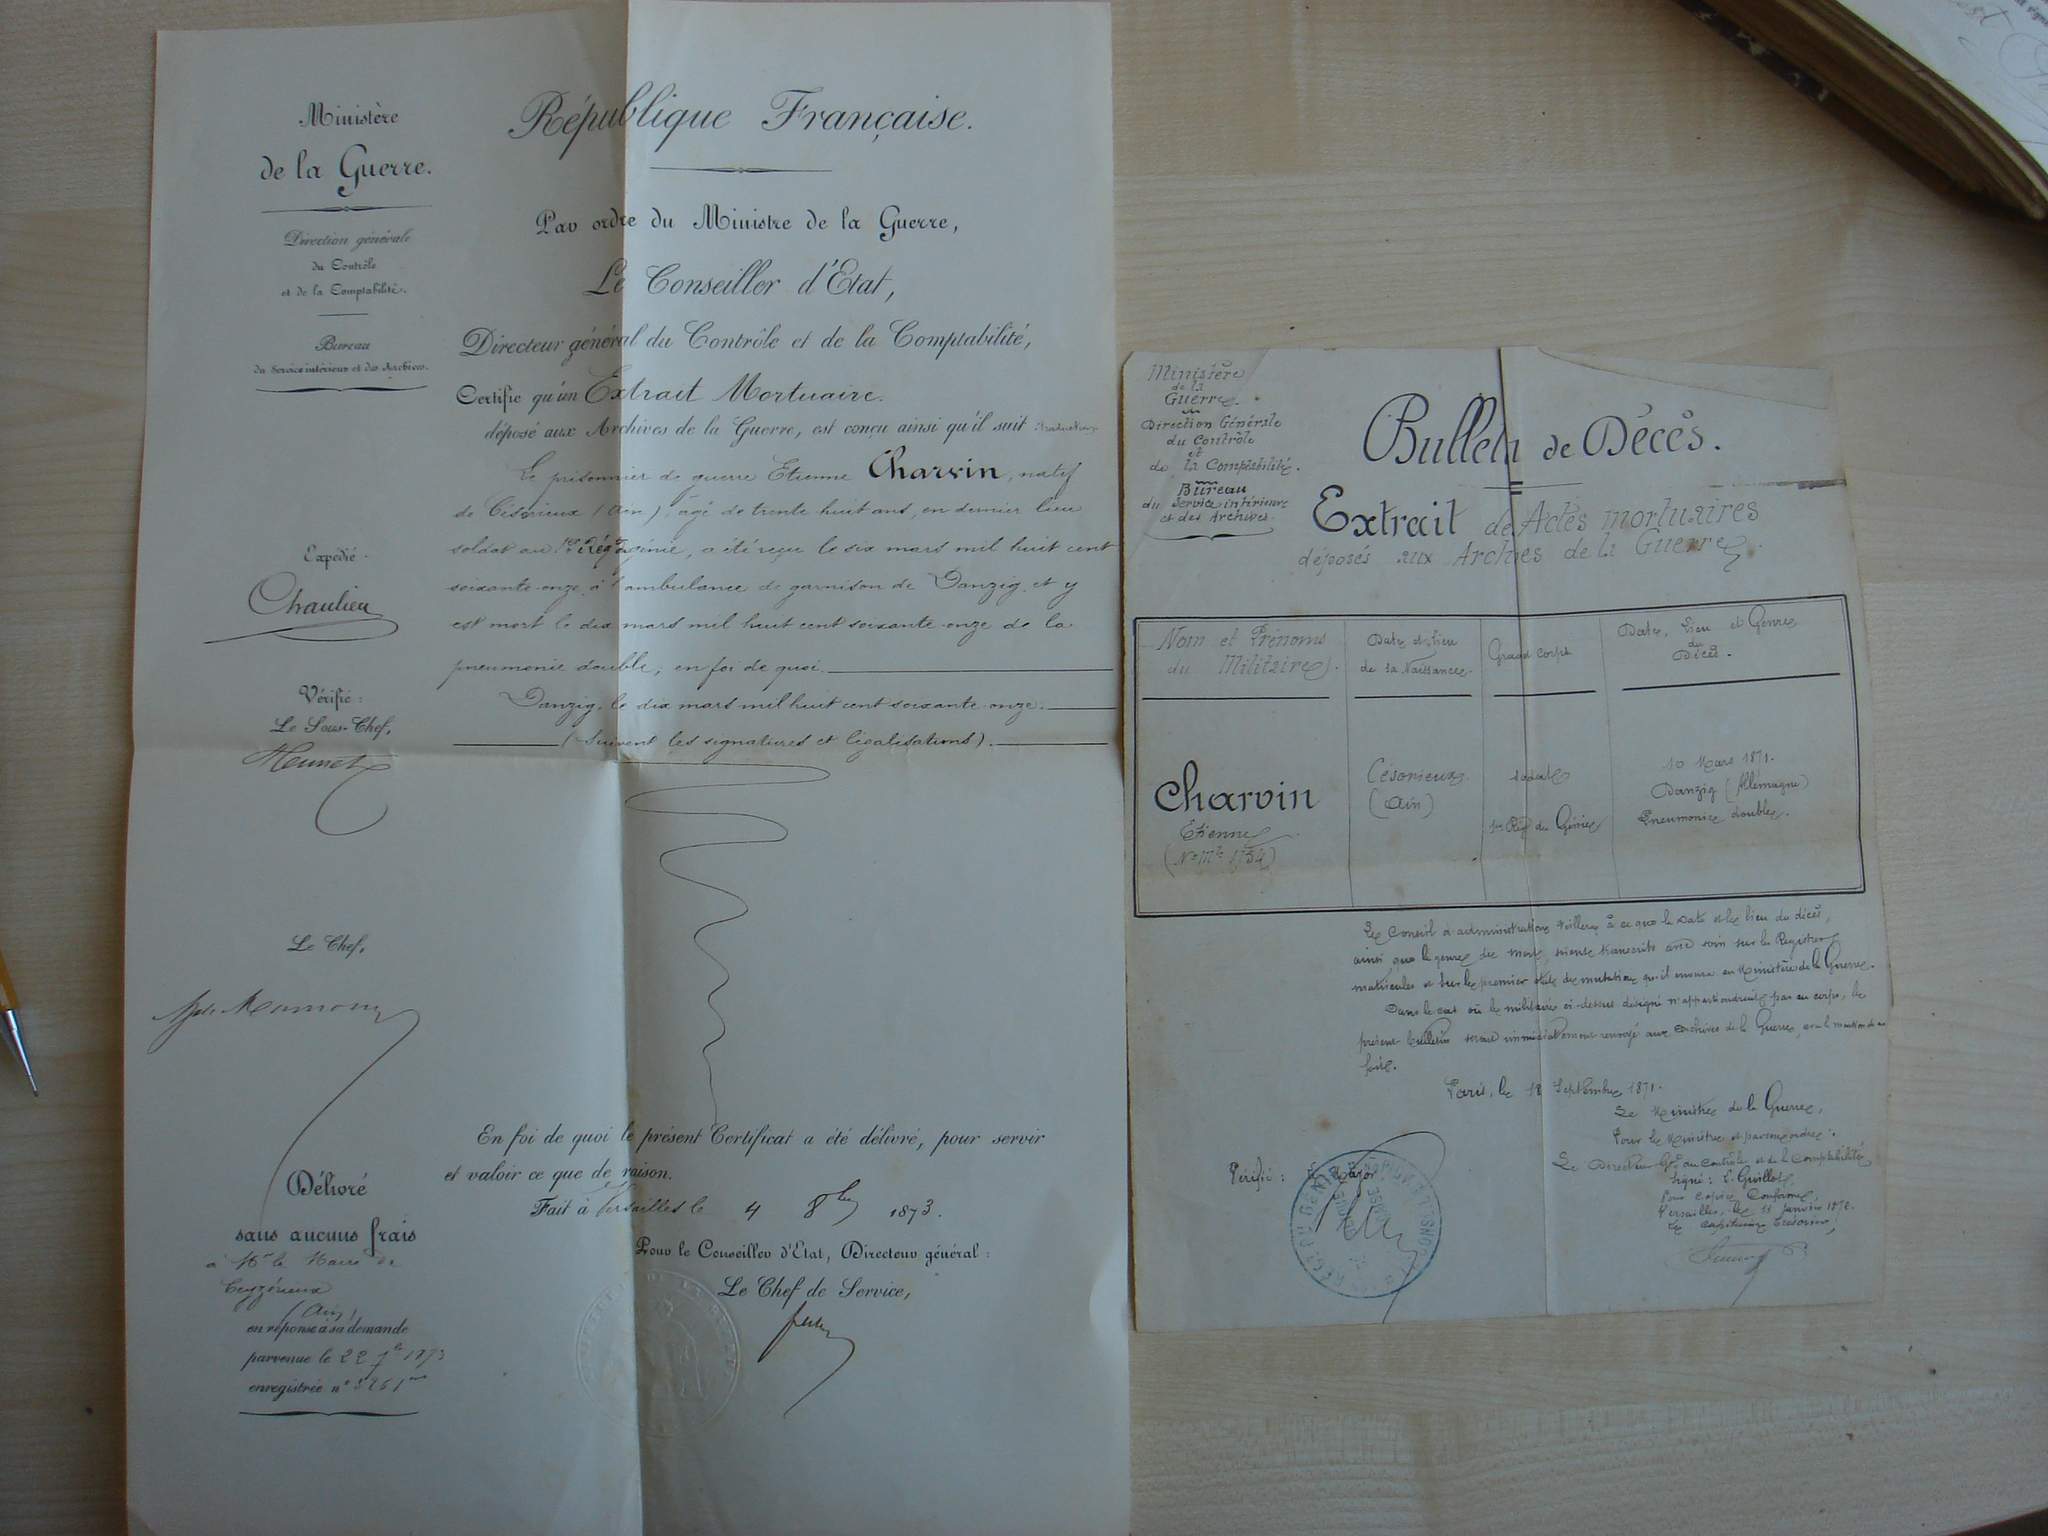 Ministère
de la Guerre.
Direction générale
du Contrôle
et de la Comptabilité.
Bureau
du Service intérieur et des Archives.
République Française.
Par ordre du Ministre de la Guerre,
Le Conseiller d'État,
Directeur général du Contrôle et de la Comptabilité,
Certifie qu'un Extrait Mortuaire.
déposé aux Archives de la Guerre, est conçu ainsi qu'il suit : traduction
Le prisonnier de guerre Etienne Charvin, natif
de Césérieux (Ain), âgé de trente huit ans, en dernier lieu
soldat au 1er Rég. génie, a été reçu le six mars mil huit cent
soixante-onze, à l'ambulance de garnison de Danzig, et y
est mort le dix mars mil huit cent soixante-onze de la
pneumonie double; en foi de quoi
Danzig, le dix mars mil huit cent soixante-onze.
(Suivent les signatures et légalisations).
Expédié.
Chaulieu
Vérifié :
Le Sous-Chef,
Le Chef,
Délivré
sans aucuns frais
à Mr le Maire de
Ceyzérieux
(Ain)
en réponse à sa demande
parvenue le 22 7bre 1873
enregistrée n°
En foi de quoi le présent Certificat a été délivré, pour servir
et valoir ce que de raison.
Fait à Versailles le 4 8bre 1873.
Pour le Conseiller d'État, Directeur général :
Le Chef de Service,
Ministère
de la
Guerre.
Direction Générale
du Contrôle
et
de la Comptabilité.
Bureau
du Service intérieur
et des Archives.
Bulletin de Décès.
Extrait de Actes mortuaires
déposés aux Archives de la Guerre.
Nom et Prénoms
du Militaire.
Date et Lieu
de la Naissance.
Grade Corps
Date, Lieu et Genre
du
Décès.
Charvin
Etienne
(No Mle 1734)
Césorieux
(Ain)
soldat
1er Rég. du Génie
10 Mars 1871.
Danzig (Allemagne)
Pneumonie double.
Le Conseil d'administration veillera à ce que la Date et le lieu du décès,
ainsi que le genre de mort, soient transcrits avec soin sur les Registres
matricules et sur le premier état de mutation qu'il enverra au Ministère de la Guerre.
Dans le cas où le militaire ci-dessus désigné n'appartiendrait pas au corps, le
présent bulletin serait immédiatement renvoyé aux Archives de la Guerre,
Paris, le 18 Septembre 1871.
Le Ministre de la Guerre,
Pour le Ministre et par son ordre :
Le Directeur Gal du Contrôle et de la Comptabilité
Signé : L. Guillot
Pour copie Conforme,
Versailles, le 11 janvier 1872.
Le Capitaine Trésorier,
Vérifié : Le Major